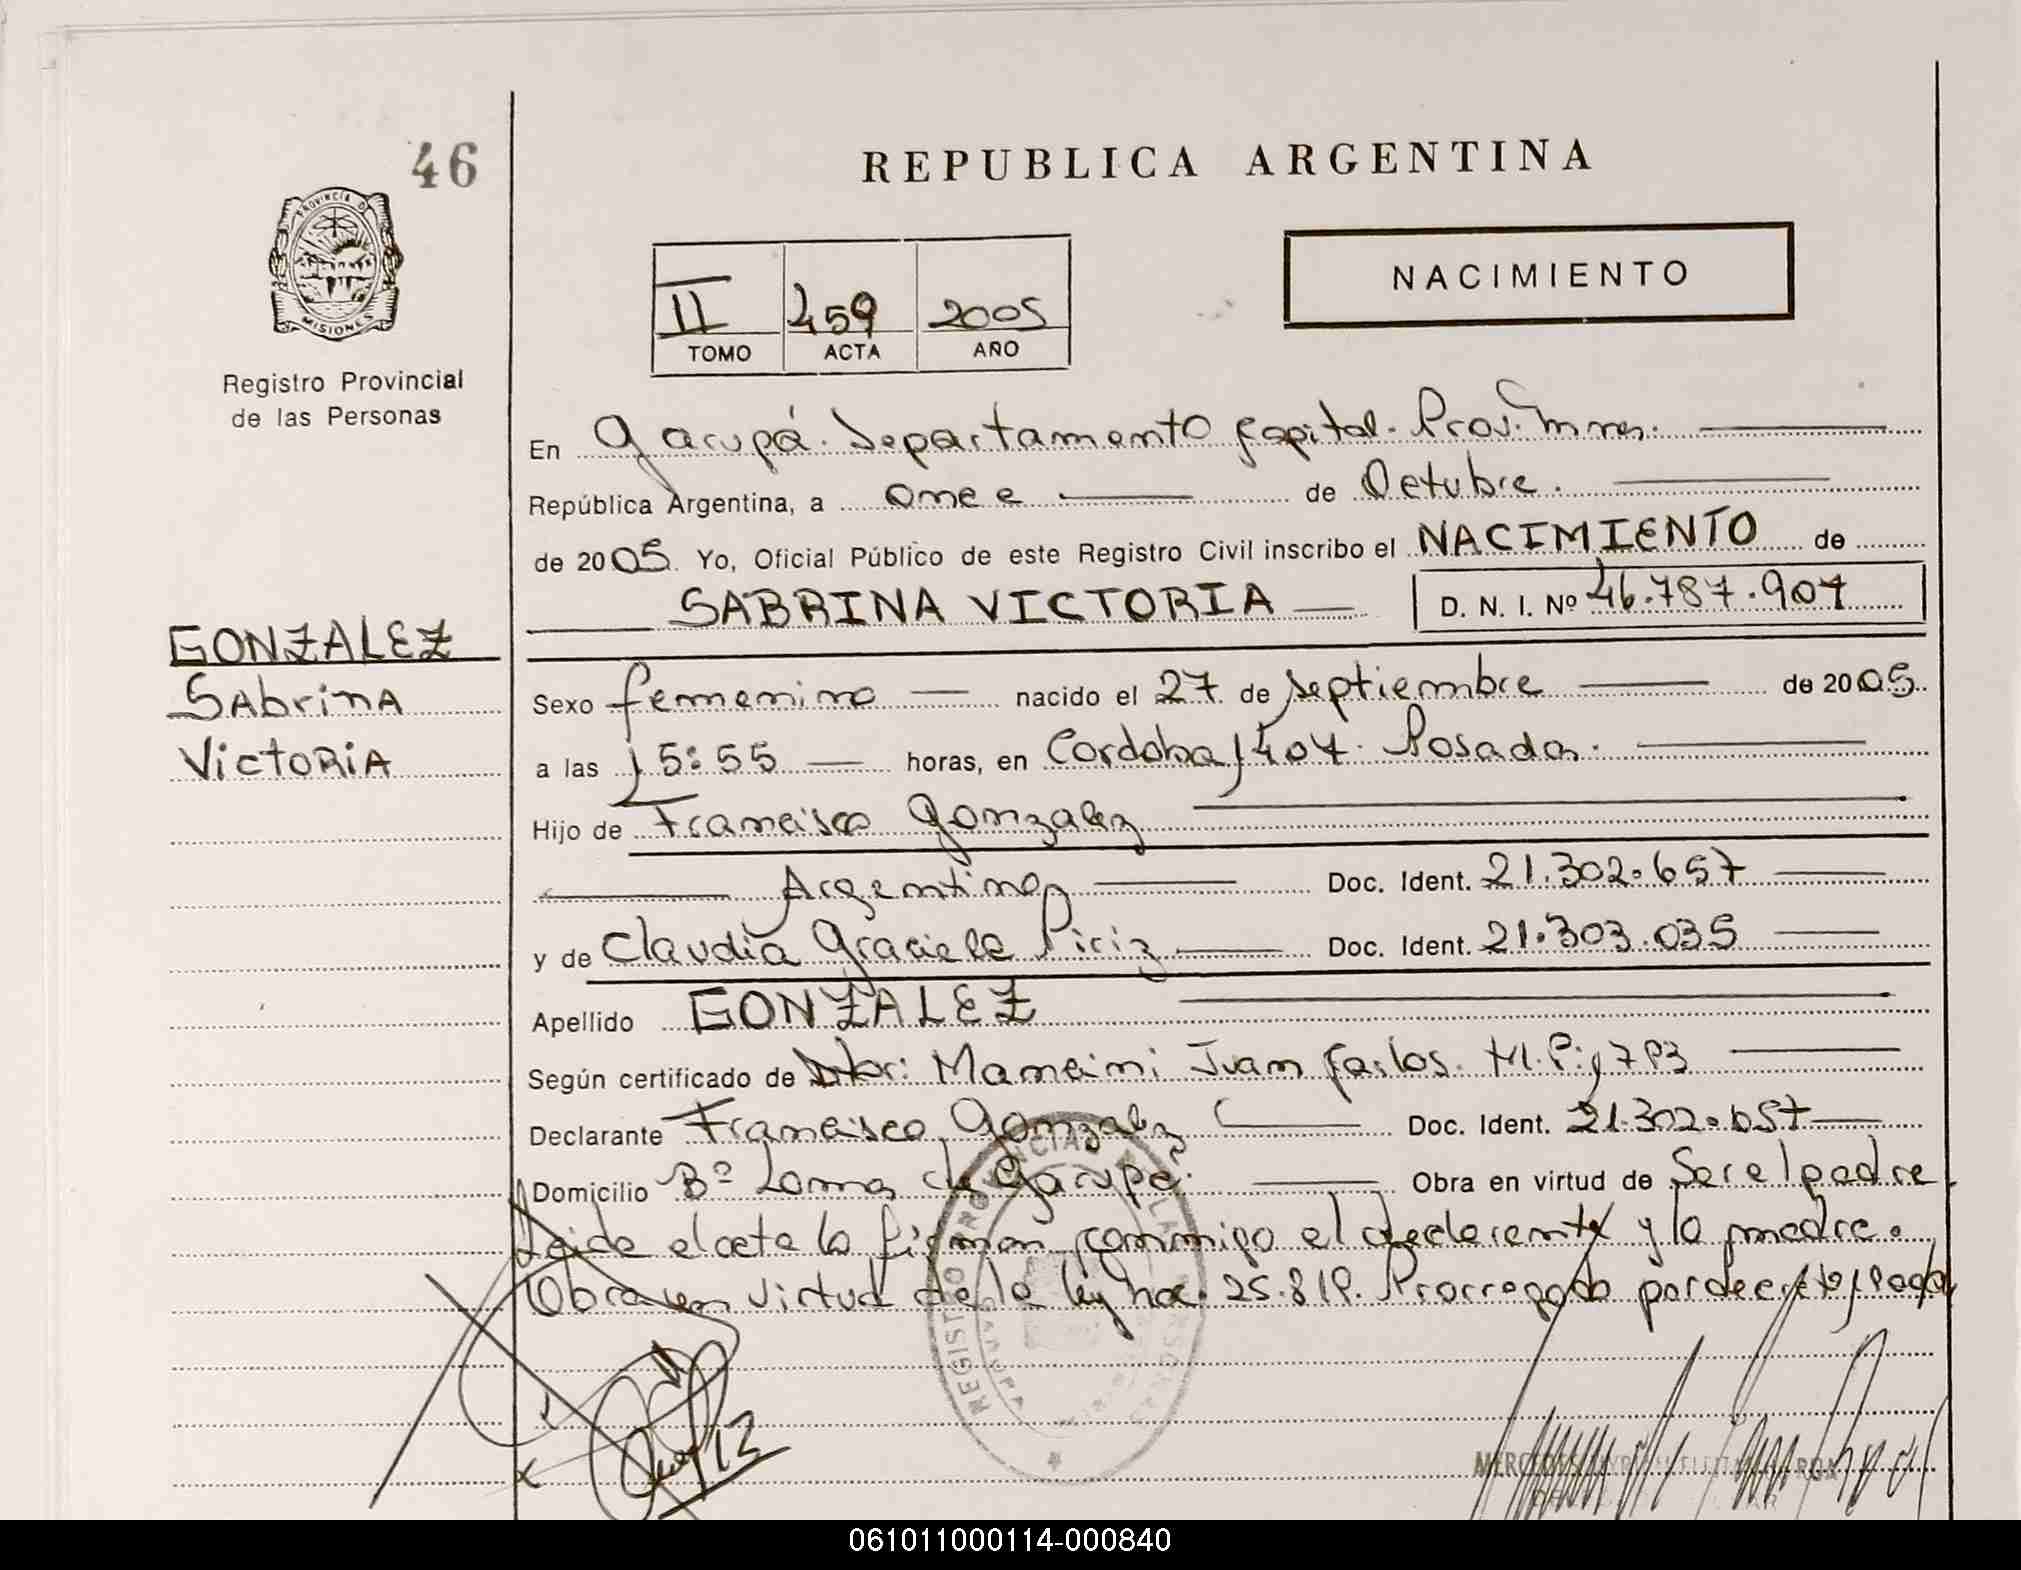 46
REPUBLICA ARGENTINA
PROVINCIA D
MISIONES
Registro Provincial
de las Personas
II 459 2005
TOMO ACTA AÑO
NACIMIENTO
En Garupá. Departamento Capital. Prov. Mnes.
República Argentina, a once de Octubre.
de 2005. Yo, Oficial Público de este Registro Civil inscribo el NACIMIENTO de
SABRINA VICTORIA D. N. I. Nº 46.787.907
GONZALEZ
Sabrina
Victoria
Sexo femenino nacido el 27 de septiembre de 2005.
a las 15:55 horas, en Cordoba 1407. Posadas.
Hijo de Francisco Gonzalez
Argentino Doc. Ident. 21.302.657
y de Claudia Graciela Piriz Doc. Ident. 21.303.035
Apellido GONZALEZ
Según certificado de Dr: Mancini Juan Carlos. M.P:
Declarante Francisco Gonzalez Doc. Ident. 21.302.657
Domicilio Bº Lomas de Garupá. Obra en virtud de Ser el padre
Leida el acta la firman conmigo el declarante y la madre.
Obra en virtud de la ley nac. 25.819. Prorrogada por decreto
REGISTRO PROVINCIAL DE LAS PERSONAS
GARUPA
MERCEDES
061011000114-000840